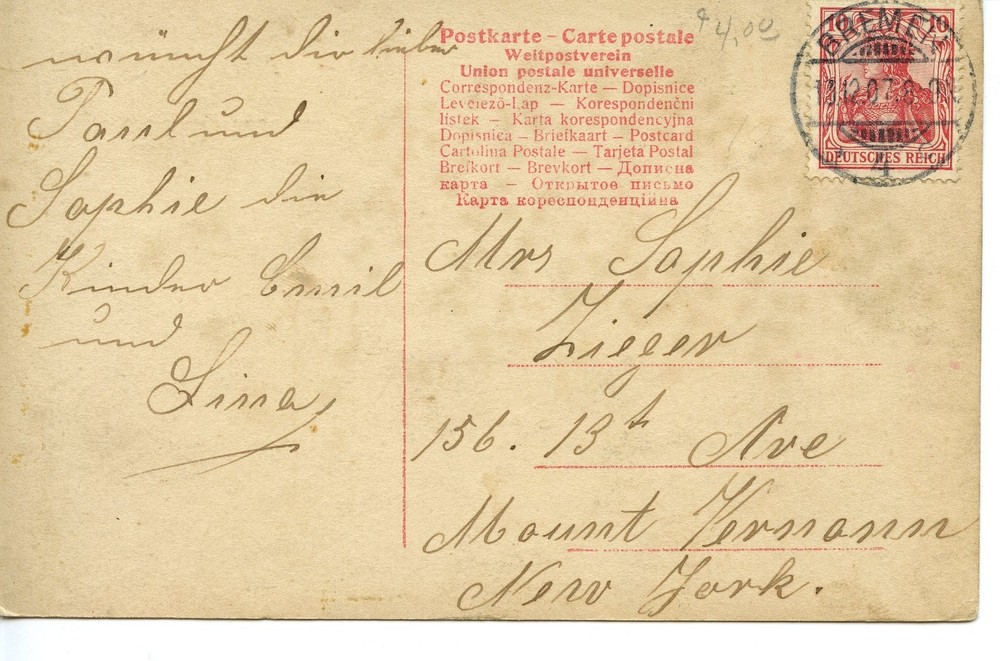 wünscht dir lieber
Paul und
Sophie die
Kinder Emil
und
Lina
4,00
Postkarte – Carte postale
Weltpostverein
Union postale universelle
Correspondenz-Karte — Dopisnice
Levelező-Lap — Korespondenční
lístek — Karta korespondencyjna
Dopisnica — Briefkaart — Postcard
Cartolina Postale — Tarjeta Postal
Brefkort — Brevkort — Дописна
карта — Открытое письмо
Карта кореспонденційна
10 10
BREMEN
12.07.8
4
DEUTSCHES REICH
Mrs Sophie
Zieger
156. 13th Ave
Mount Vernonn
New York.